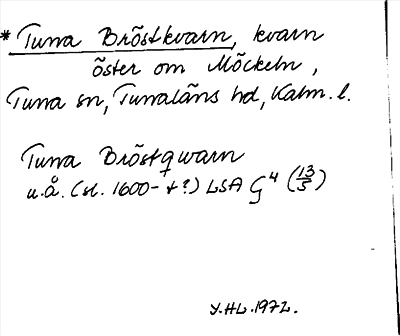 * Tuna Bröstkvarn, kvarn
öster om Möckeln,
Tuna sn, Tunaläns hd, Kalm. l.
Tuna Bröstqwarn
u.å. (sl. 1600-t?) LSA G⁴ (13/5)
Y.HL.1972.